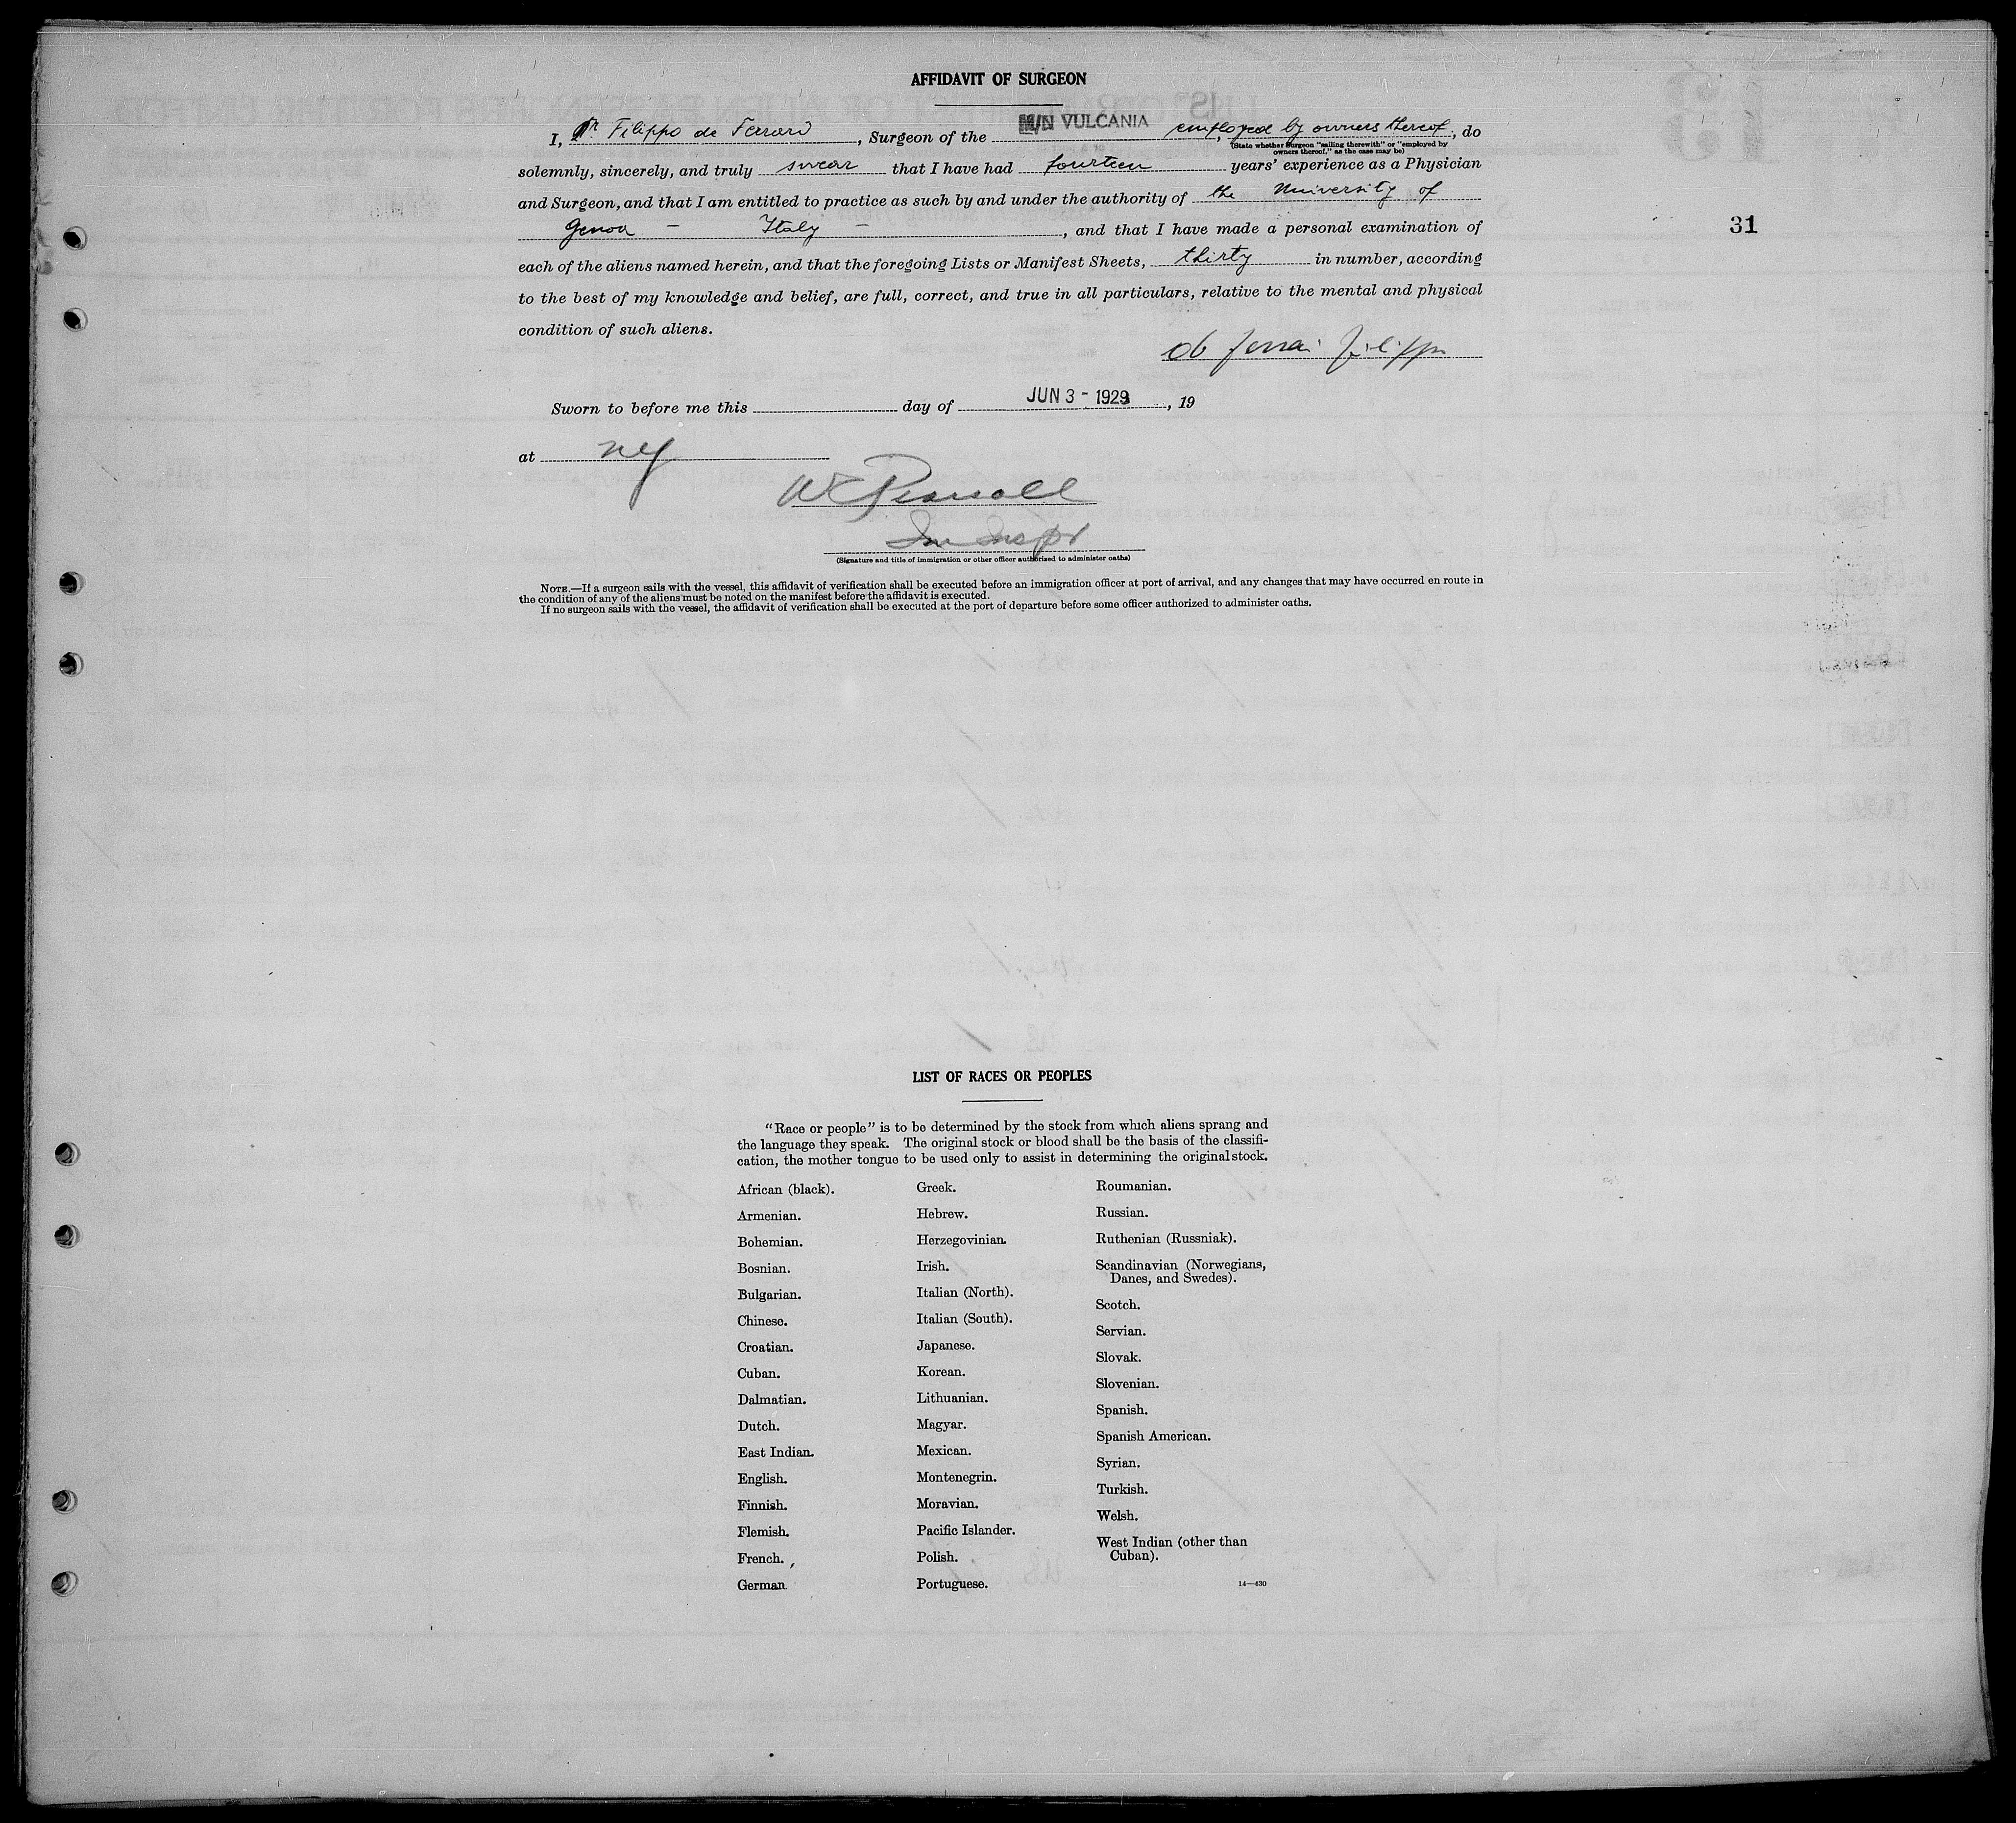 AFFIDAVIT OF SURGEON
I, Dr Filippo de Ferrari, Surgeon of the M/N VULCANIA, employed by owners thereof, do
(State whether Surgeon "sailing therewith" or "employed by
owners thereof," as the case may be)
solemnly, sincerely, and truly swear that I have had fourteen years' experience as a Physician
and Surgeon, and that I am entitled to practice as such by and under the authority of the University of
Genoa - Italy -, and that I have made a personal examination of
31
each of the aliens named herein, and that the foregoing Lists or Manifest Sheets, thirty in number, according
to the best of my knowledge and belief, are full, correct, and true in all particulars, relative to the mental and physical
condition of such aliens.
de Ferrari Filippo
Sworn to before me this day of JUN 3 - 1929, 19
at NY
W Pearsall
Im Inspr
(Signature and title of immigration or other officer authorized to administer oaths)
NOTE.—If a surgeon sails with the vessel, this affidavit of verification shall be executed before an immigration officer at port of arrival, and any changes that may have occurred en route in
the condition of any of the aliens must be noted on the manifest before the affidavit is executed.
If no surgeon sails with the vessel, the affidavit of verification shall be executed at the port of departure before some officer authorized to administer oaths.
LIST OF RACES OR PEOPLES
"Race or people" is to be determined by the stock from which aliens sprang and
the language they speak. The original stock or blood shall be the basis of the classifi-
cation, the mother tongue to be used only to assist in determining the original stock.
African (black).
Armenian.
Bohemian.
Bosnian.
Bulgarian.
Chinese.
Croatian.
Cuban.
Dalmatian.
Dutch.
East Indian.
English.
Finnish.
Flemish.
French.
German
Greek.
Hebrew.
Herzegovinian.
Irish.
Italian (North).
Italian (South).
Japanese.
Korean.
Lithuanian.
Magyar.
Mexican.
Montenegrin.
Moravian.
Pacific Islander.
Polish.
Portuguese.
Roumanian.
Russian.
Ruthenian (Russniak).
Scandinavian (Norwegians,
Danes, and Swedes).
Scotch.
Servian.
Slovak.
Slovenian.
Spanish.
Spanish American.
Syrian.
Turkish.
Welsh.
West Indian (other than
Cuban).
14—430